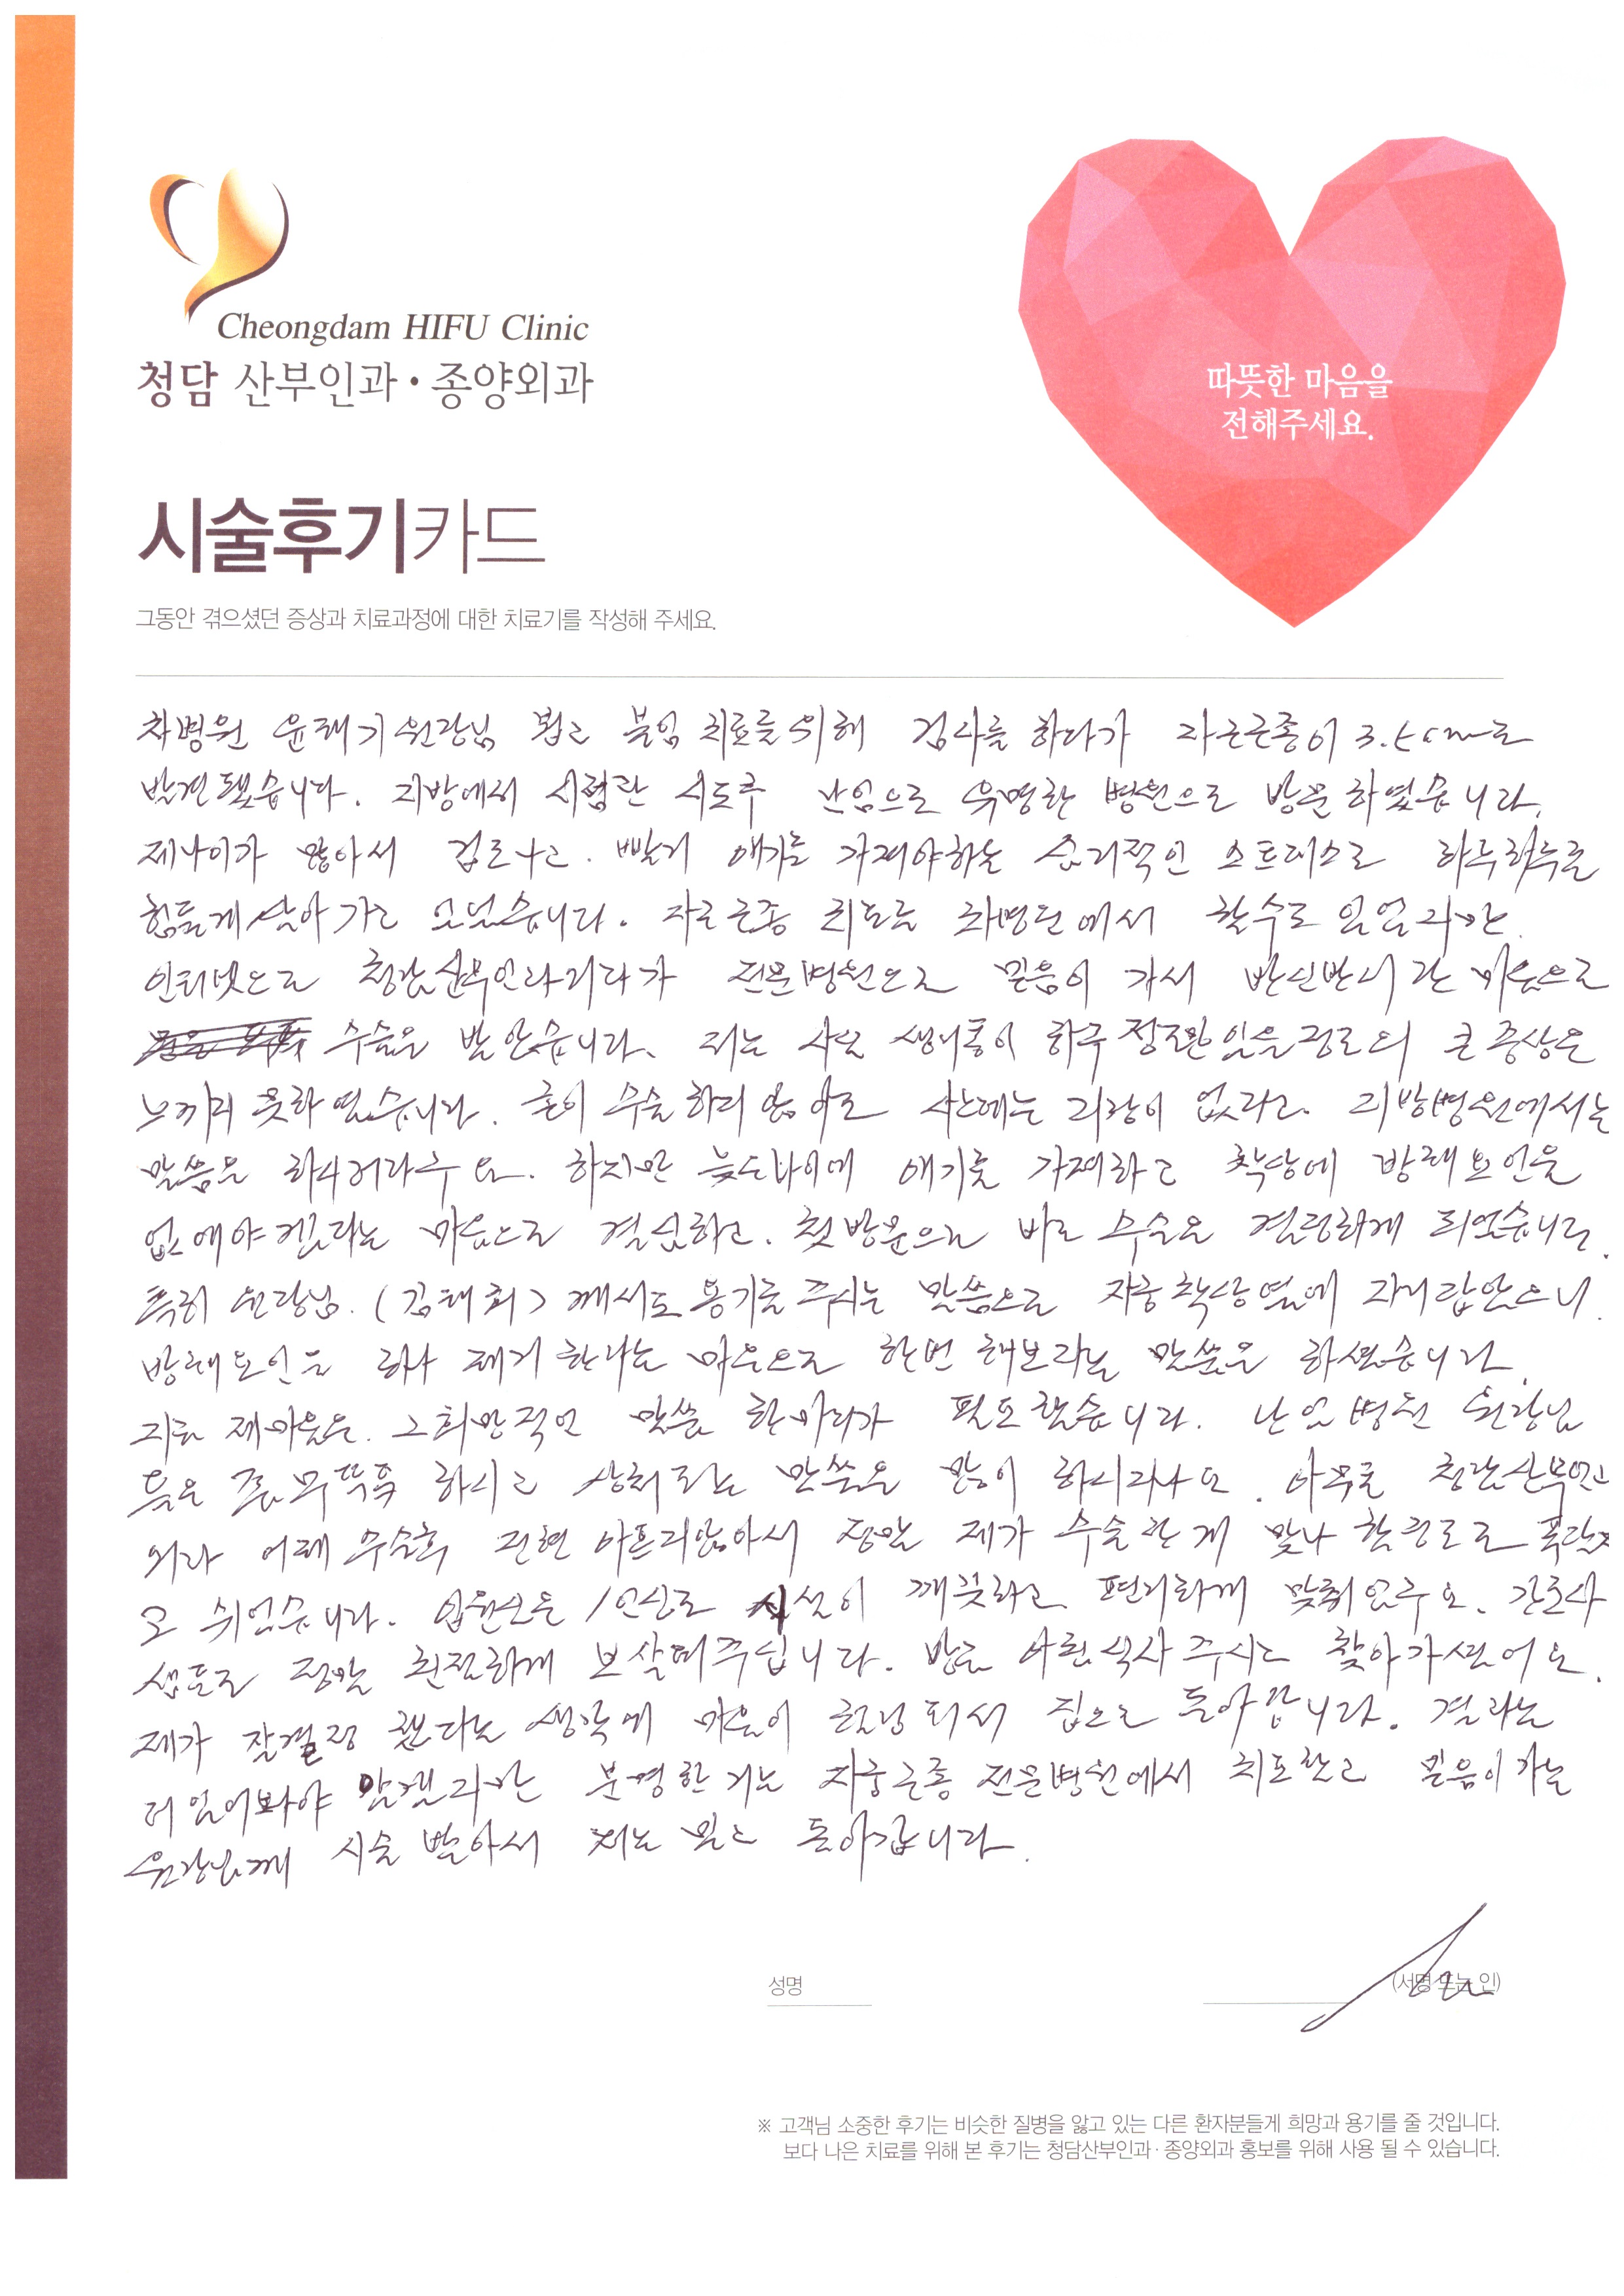 Cheongdam HIFU Clinic
청담 산부인과·종양외과
따뜻한 마음을
전해주세요.
시술후기카드
그동안 겪으셨던 증상과 치료과정에 대한 치료기를 작성해 주세요.
차병원 윤태기 원장님 뵙고 불임 치료를 위해 검사를 하다가 자궁근종이 3.5cm로
발견됐습니다. 지방에서 시험관 시도후 난임으로 유명한 병원으로 방문하였습니다.
제나이가 많아서 겁도나고. 빨리 애기를 가져야하는 심리적인 스트레스로 하루하루를
힘들게 살아가고 있습니다. 자궁근종 치료는 차병원에서 할수도 있었지만
인터넷으로 청담산부인과 전문병원으로 믿음이 가서 반신반의 한 마음으로
수술을 받았습니다. 저는 사실 생리통이 하루 정도만 있을정도의 큰 증상은
느끼지 못하였습니다. 굳이 수술하지 않아도 지장이 없다고. 지방병원에서는
말씀을 하시더라구요. 하지만 늦은나이에 애기를 가져야하고 착상에 방해요인을
없애야 겠다는 마음으로 결심하고. 첫방문으로 바로 수술을 결정하게 되었습니다.
특히 원장님.(김태희)께서도 용기를 주시는 말씀으로 자궁 착상 옆에 자리잡았으니.
방해요인을 하나 제거한다는 마음으로 한번 해보라는 말씀을 하셨습니다.
지금 제마음은. 그 희망적인 말씀 한마디가 필요했습니다. 난임병원 원장님
들은 좀 무뚝뚝 하시고 상처되는 말씀을 많이 하시더라구요. 아무튼 청담산부인과
와서 어제 수술후 전혀 아프지않아서 정말 제가 수술한게 맞나 할정도로
고 쉬었습니다. 입원실도 1인실로 시설이 깨끗하고 편리하게 맞춰있구요. 간호사
샘들도 정말 친절하게 보살펴주십니다. 방금 아침식사 주시고 찾아가셨어요.
제가 잘결정 했다는 생각에 마음이 되서 집으로 돌아갑니다. 결과는
더 있어봐야 알겠지만 분명한 거는 자궁근종 전문병원에서 치료하고 믿음이 가는
원장님께 시술 받아서 저는 믿고 돌아갑니다.
성명
(서명 또는 인)
※ 고객님 소중한 후기는 비슷한 질병을 앓고 있는 다른 환자분들게 희망과 용기를 줄 것입니다.
보다 나은 치료를 위해 본 후기는 청담산부인과·종양외과 홍보를 위해 사용 될 수 있습니다.